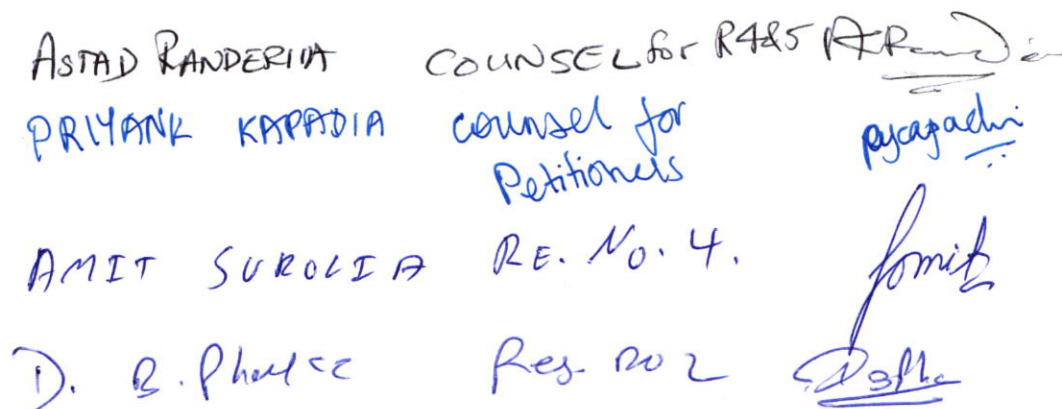 ASTAD RANDERIIA COUNSEL for R4&5
PRIYANK KAPADIA Counsel for
Petitioners
AMIT SUROLIA RE. No. 4. Amit
D. B. Res. no 2